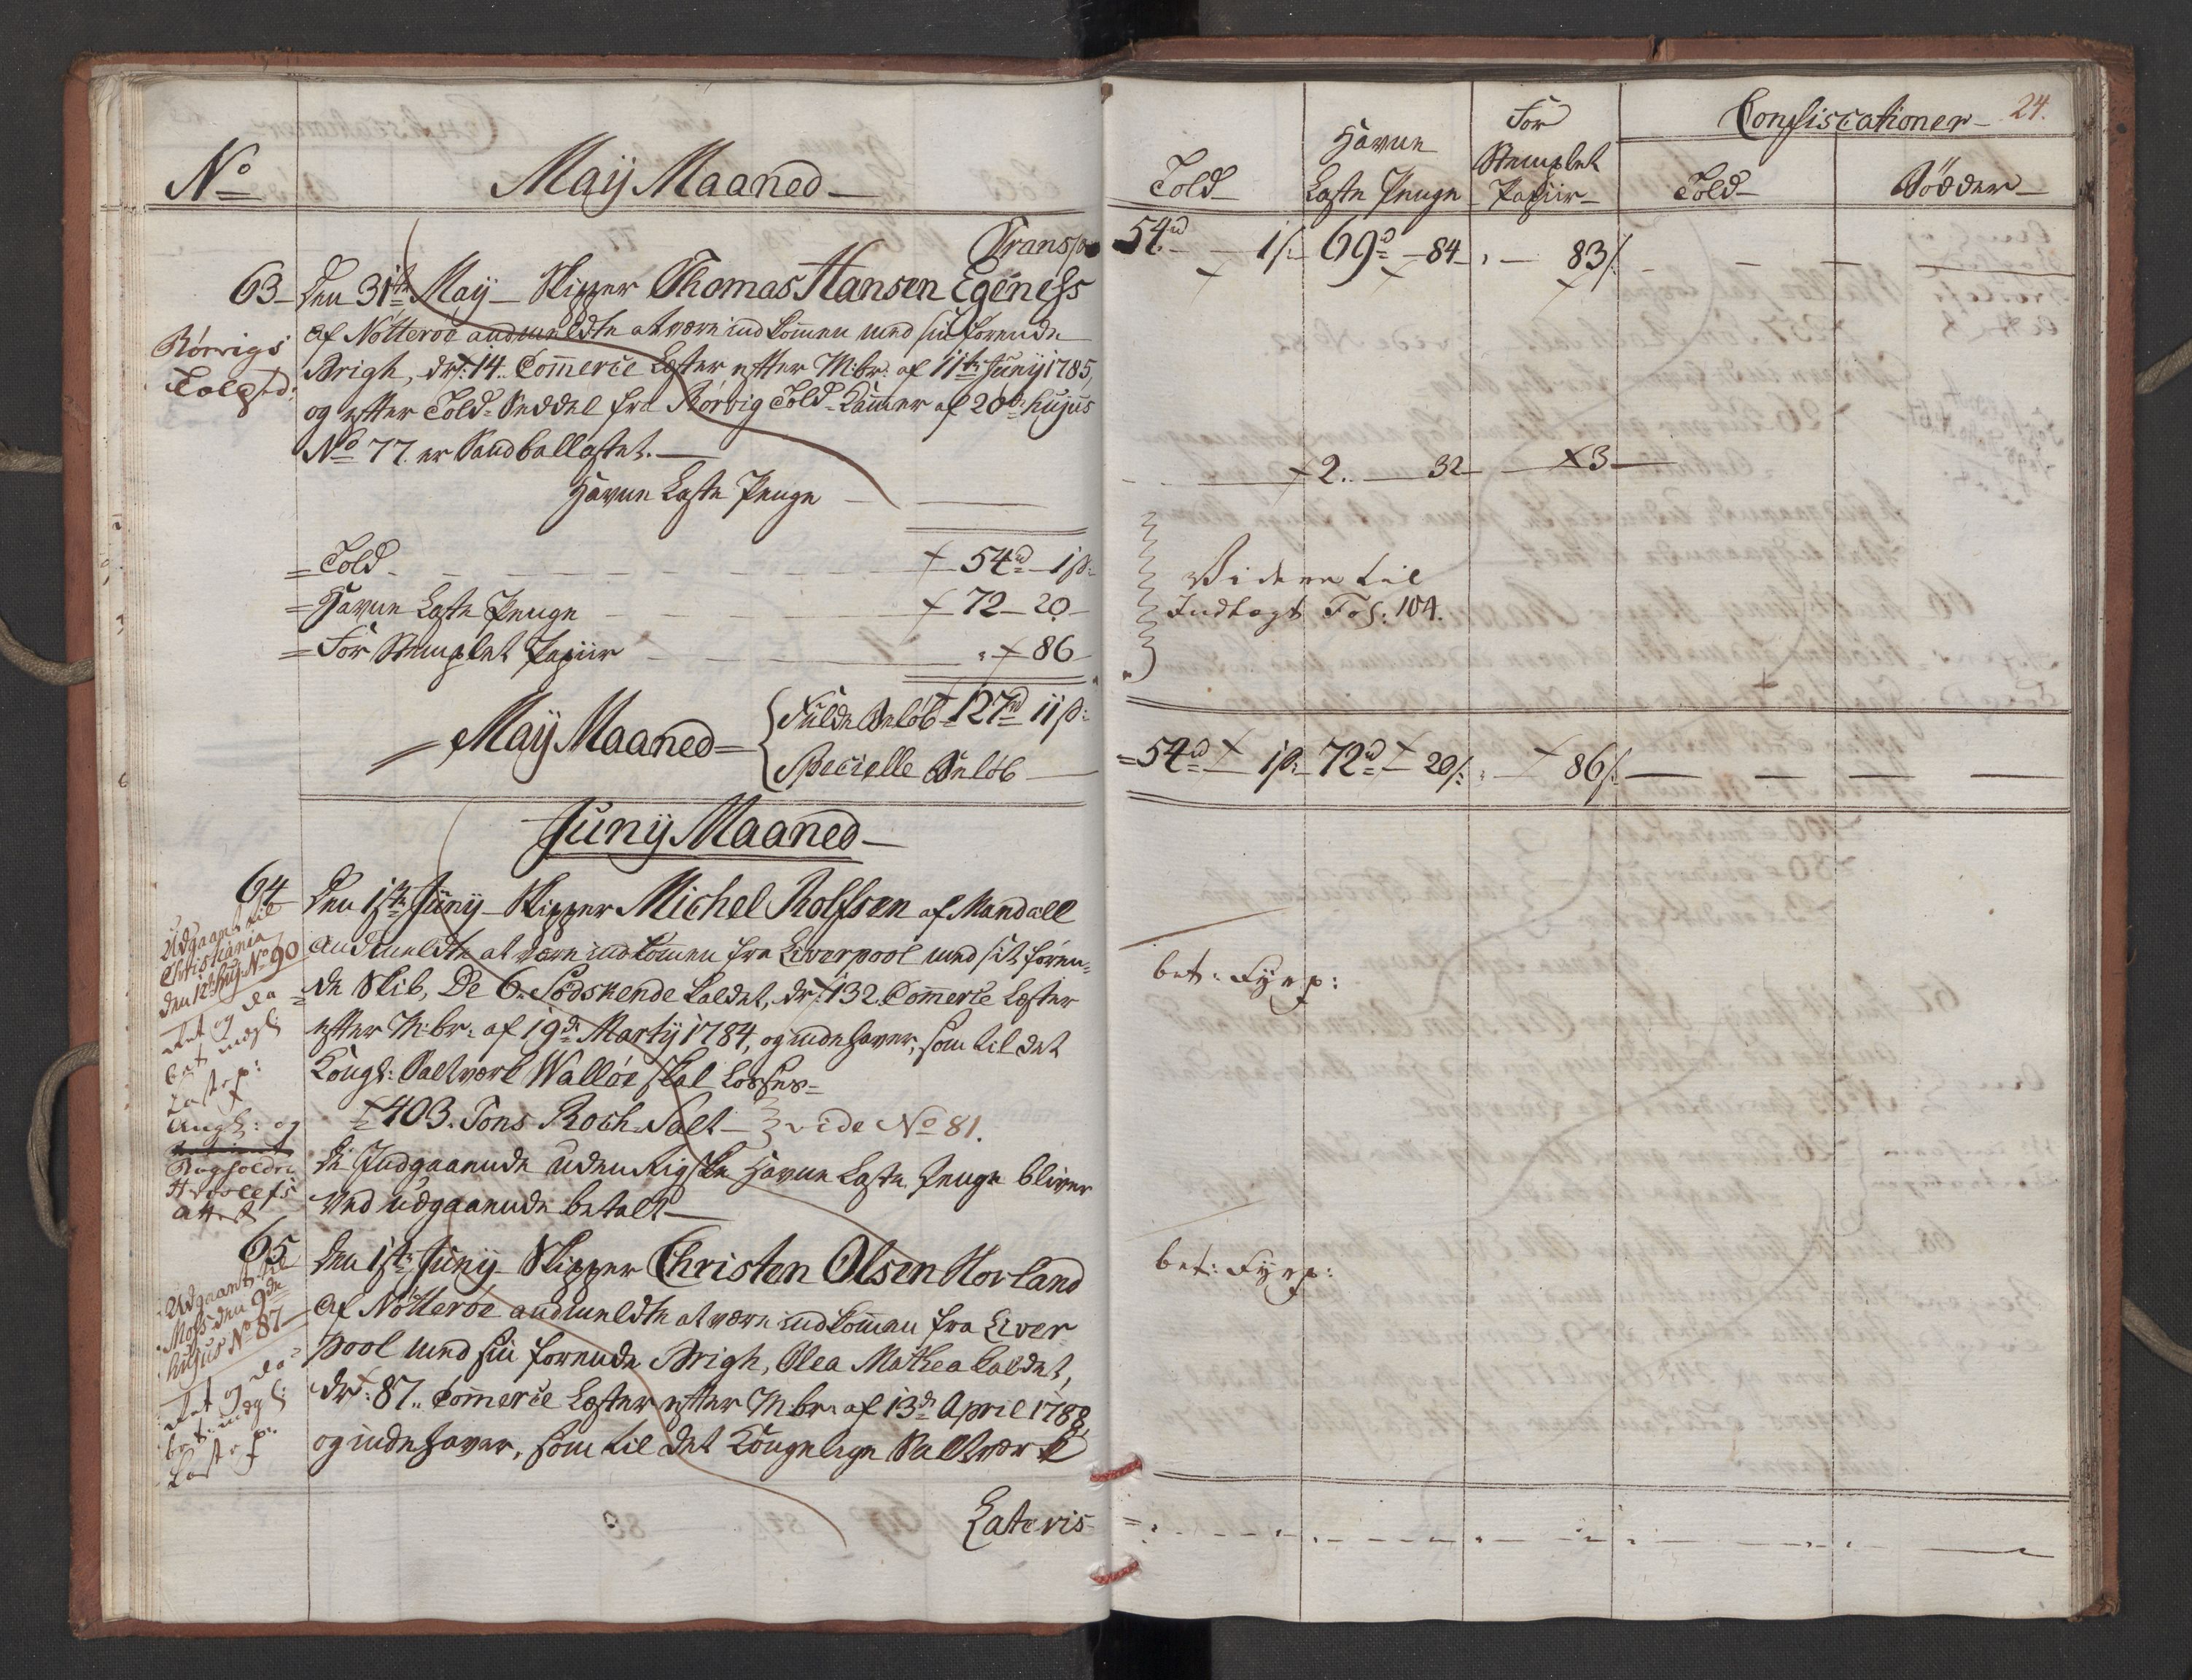 No
Maij Maaned
Transp
63
Den 31te Maij Skipper Thomas Hansen Egeness
Rørvigs
Tolds:
af Nötteröe andmeldte at være indkommen med sin förende
Brigh, dr: 14. Commerce Læster efter M:br: af 11te Junij 1785,
og efter Told-Seddel fra Rørvig Told-Kammer af 20de hujus
No 77. er Sandballastet.
Havne Laste Penge
Told 54rd 1s:
Havne Laste Penge 72 20
For Stemplet Papiir 86
Maij Maaned
Fulde Beløb 127rd 11s:
Specielle Beløb
Junij Maaned
64
Udgaaet til
Christiania
den 12te huj: No 90
Den 1ste Junij Skipper Michel Rolfsen af Mandall
andmeldte at være indkommen fra Liverpool med sit fören-
de Skib, De 6. Södskende kaldet, dr: 132. Commerce Læster
efter M:br: af 19de Martij 1784, og indehaver, som til det
Kongl: Saltværk Walløe skal Losses
403. Tons Roch-Salt vide No 81.
og da
bet indgl:
Lastep:
Angl: og
Attest
De Indgaaende udenrigske Havne Laste Penge bliver
ved udgaaende betalt
65
Udgaaet til
Moss den 9de
hujus No 87
Den 1ste Junij Skipper Christen Olsen Horland
af Nötteröe andmeldte at være indkommen fra Liver-
pool med sin förende Brigh, Olea Mathea kaldet,
dr: 87. Commerce Læster efter M:br: af 13de April 1788
og indehaver, som til det Kongelige Saltværk
og da
bet: indgl:
Lastep:
Lateris
24.
Told
Havne
Laste Penge
For
Stemplet
Papiir
Confiscationer
Told
Bödder
54rd 1s: 69rd 84 83s:
2. 32 3
Videre til
Indtægt Fol: 104.
54rd 1s: 72rd 20s: 86s:
bet: Fyrp:
bet: Fyrp: